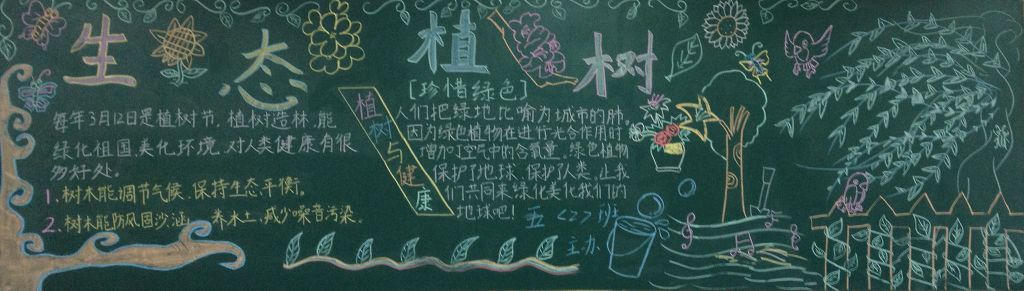 生态植树
[珍惜绿色]
每年3月12日是植树节,植树造林,能
绿化祖国,美化环境,对人类健康有很
多好处。
1.树木能调节气候,保持生态平衡。
2.树木能防风固沙涵养水土,减少噪音污染。
植树与健康
人们把绿地比喻为城市的肺。
因为绿色植物在进行光合作用时
增加了空气中的含氧量,绿色植物
保护了地球,保护了人类,让我
们共同来绿化美化我们的
地球吧!
五<2>班
主办